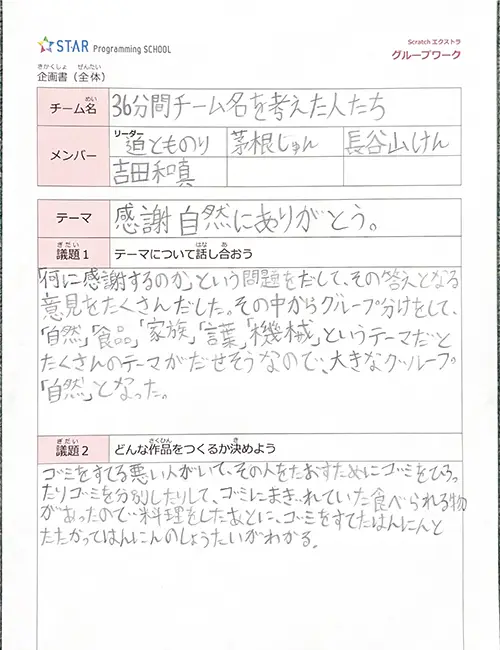 STAR Programming SCHOOL
Scratch エクストラ
グループワーク
きかくしょ ぜんたい
企画書（全体）
めい
チーム名 36分間チーム名を考えた人たち
メンバー
リーダー
道とものり 茅根じゅん 長谷山けん
吉田和真
テーマ 感謝 自然にありがとう。
ぎだい はな あ
議題1 テーマについて話し合おう
「何に感謝するのか」という問題をだして、その答えとなる
意見をたくさんだした。その中からグループ分けをして、
「自然」「食品」「家族」「言葉」「機械」というテーマだと
たくさんのテーマがだせそうなので、大きなグループ
「自然」となった。
ぎだい さくひん き
議題2 どんな作品をつくるか決めよう
ゴミをすてる悪い人がいて、その人をたおすためにゴミをひろっ
たりゴミを分別したりして、ゴミにまぎれていた食べられる物
があったので料理をしたあとに、ゴミをすてたはんにんと
たたかってはんにんのしょうたいがわかる。